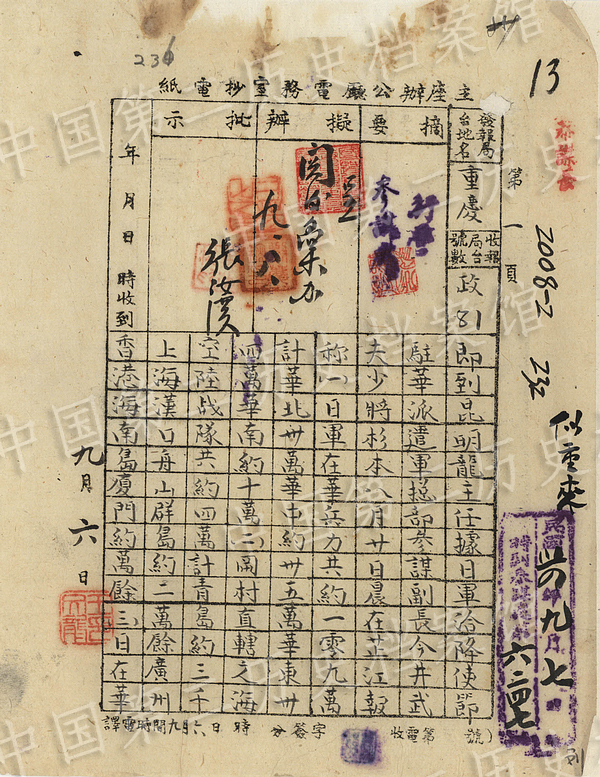 236
13
主座辦公廳電務室抄電紙
第一頁
2008-2
似重來
發報局台地名
重慶
收報局台號數
政81
摘要
擬辦
批示
參謀
閱
九.八.
張
年 月 日 時收到
即到昆明龍主任據日軍洽降使節
駐華派遣軍總部參謀副長今井武
夫少將於本八月廿日晨在芷江報
称(一)日軍在華兵力共約一零九萬
計華北卅萬華中約卅五萬華東卅
四萬華南約十萬(二)岡村直轄之海
空陸战隊共約四萬計青島約三千
上海漢口舟山群島約二萬餘廣州
香港海南島廈門約萬餘(三)日在華
九月六日
卅四年九月七日
六二四七
譯電時間九月六日 時 分簽字 收電第 號
中国第二历史档案馆